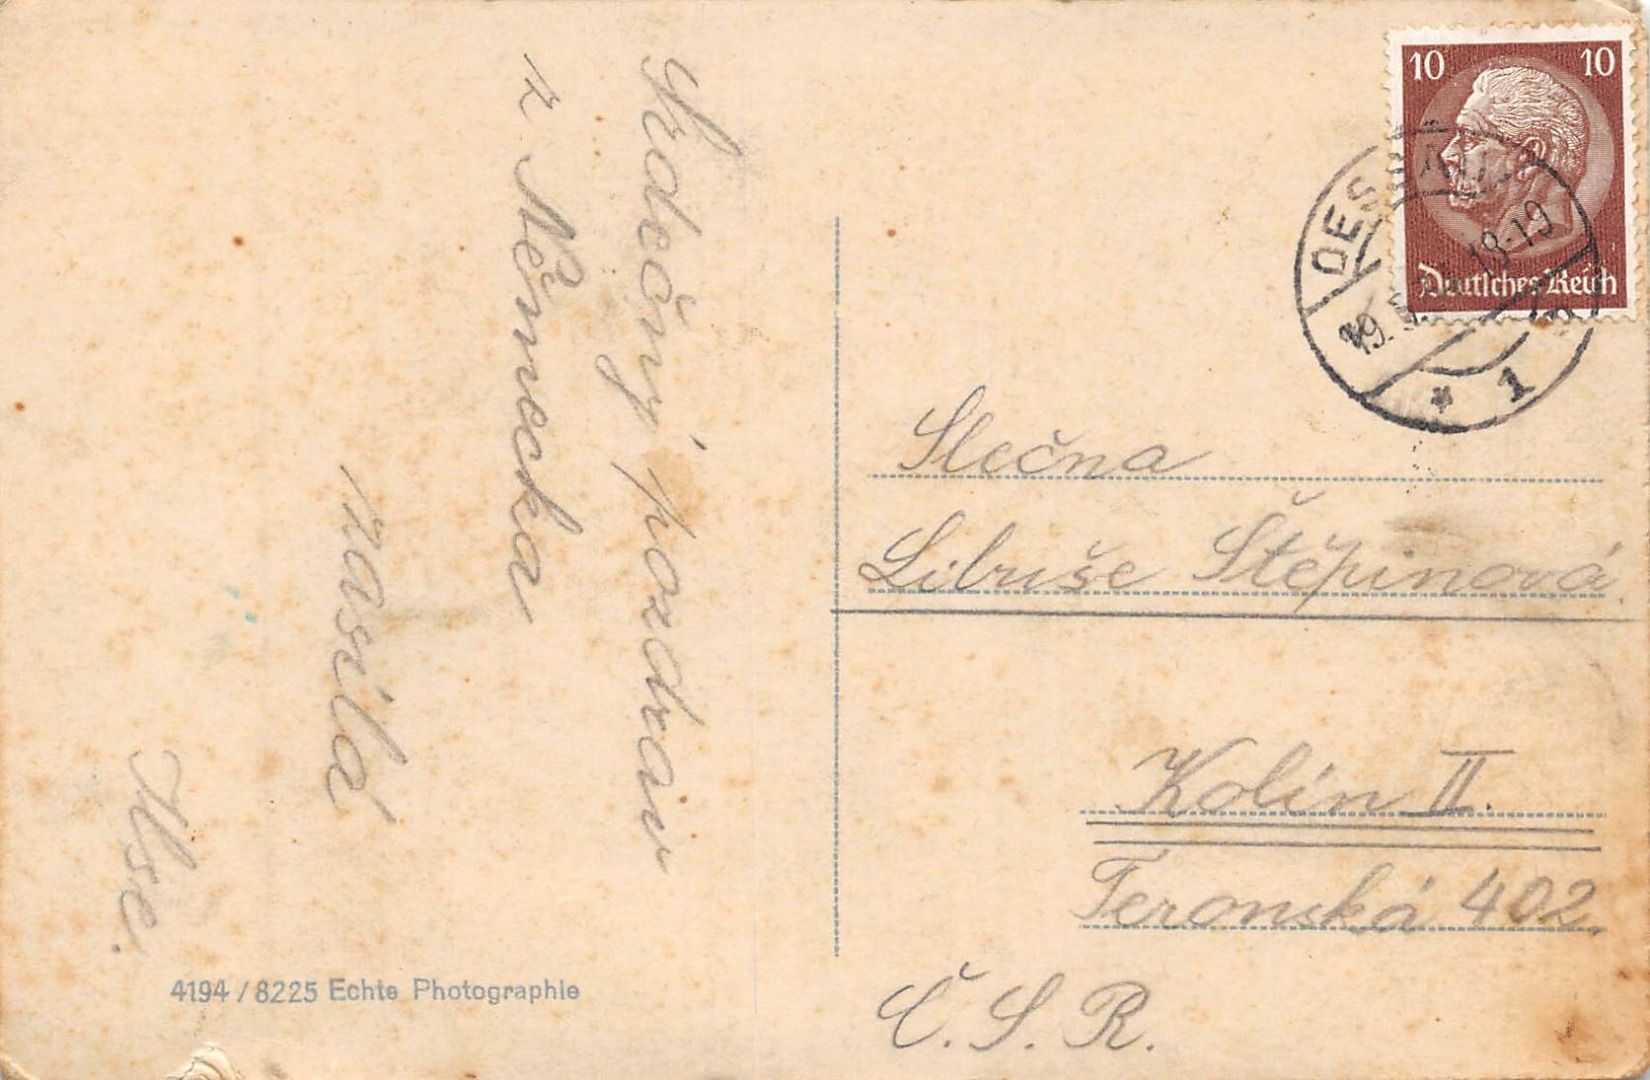 Srdečný pozdrav
z Německa
zasílá
Ilse.
4194/8225 Echte Photographie
10 10
Deutsches Reich
DESSAU
18-19
* 1
Slečna
Libuše Štěpinová
Kolín II.
Teronská 402.
Č. S. R.